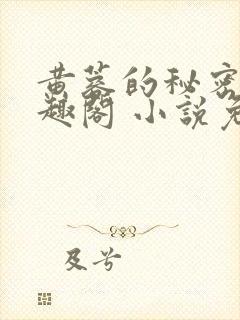 黄蓉的秘密
趣阁 小说免
及兮